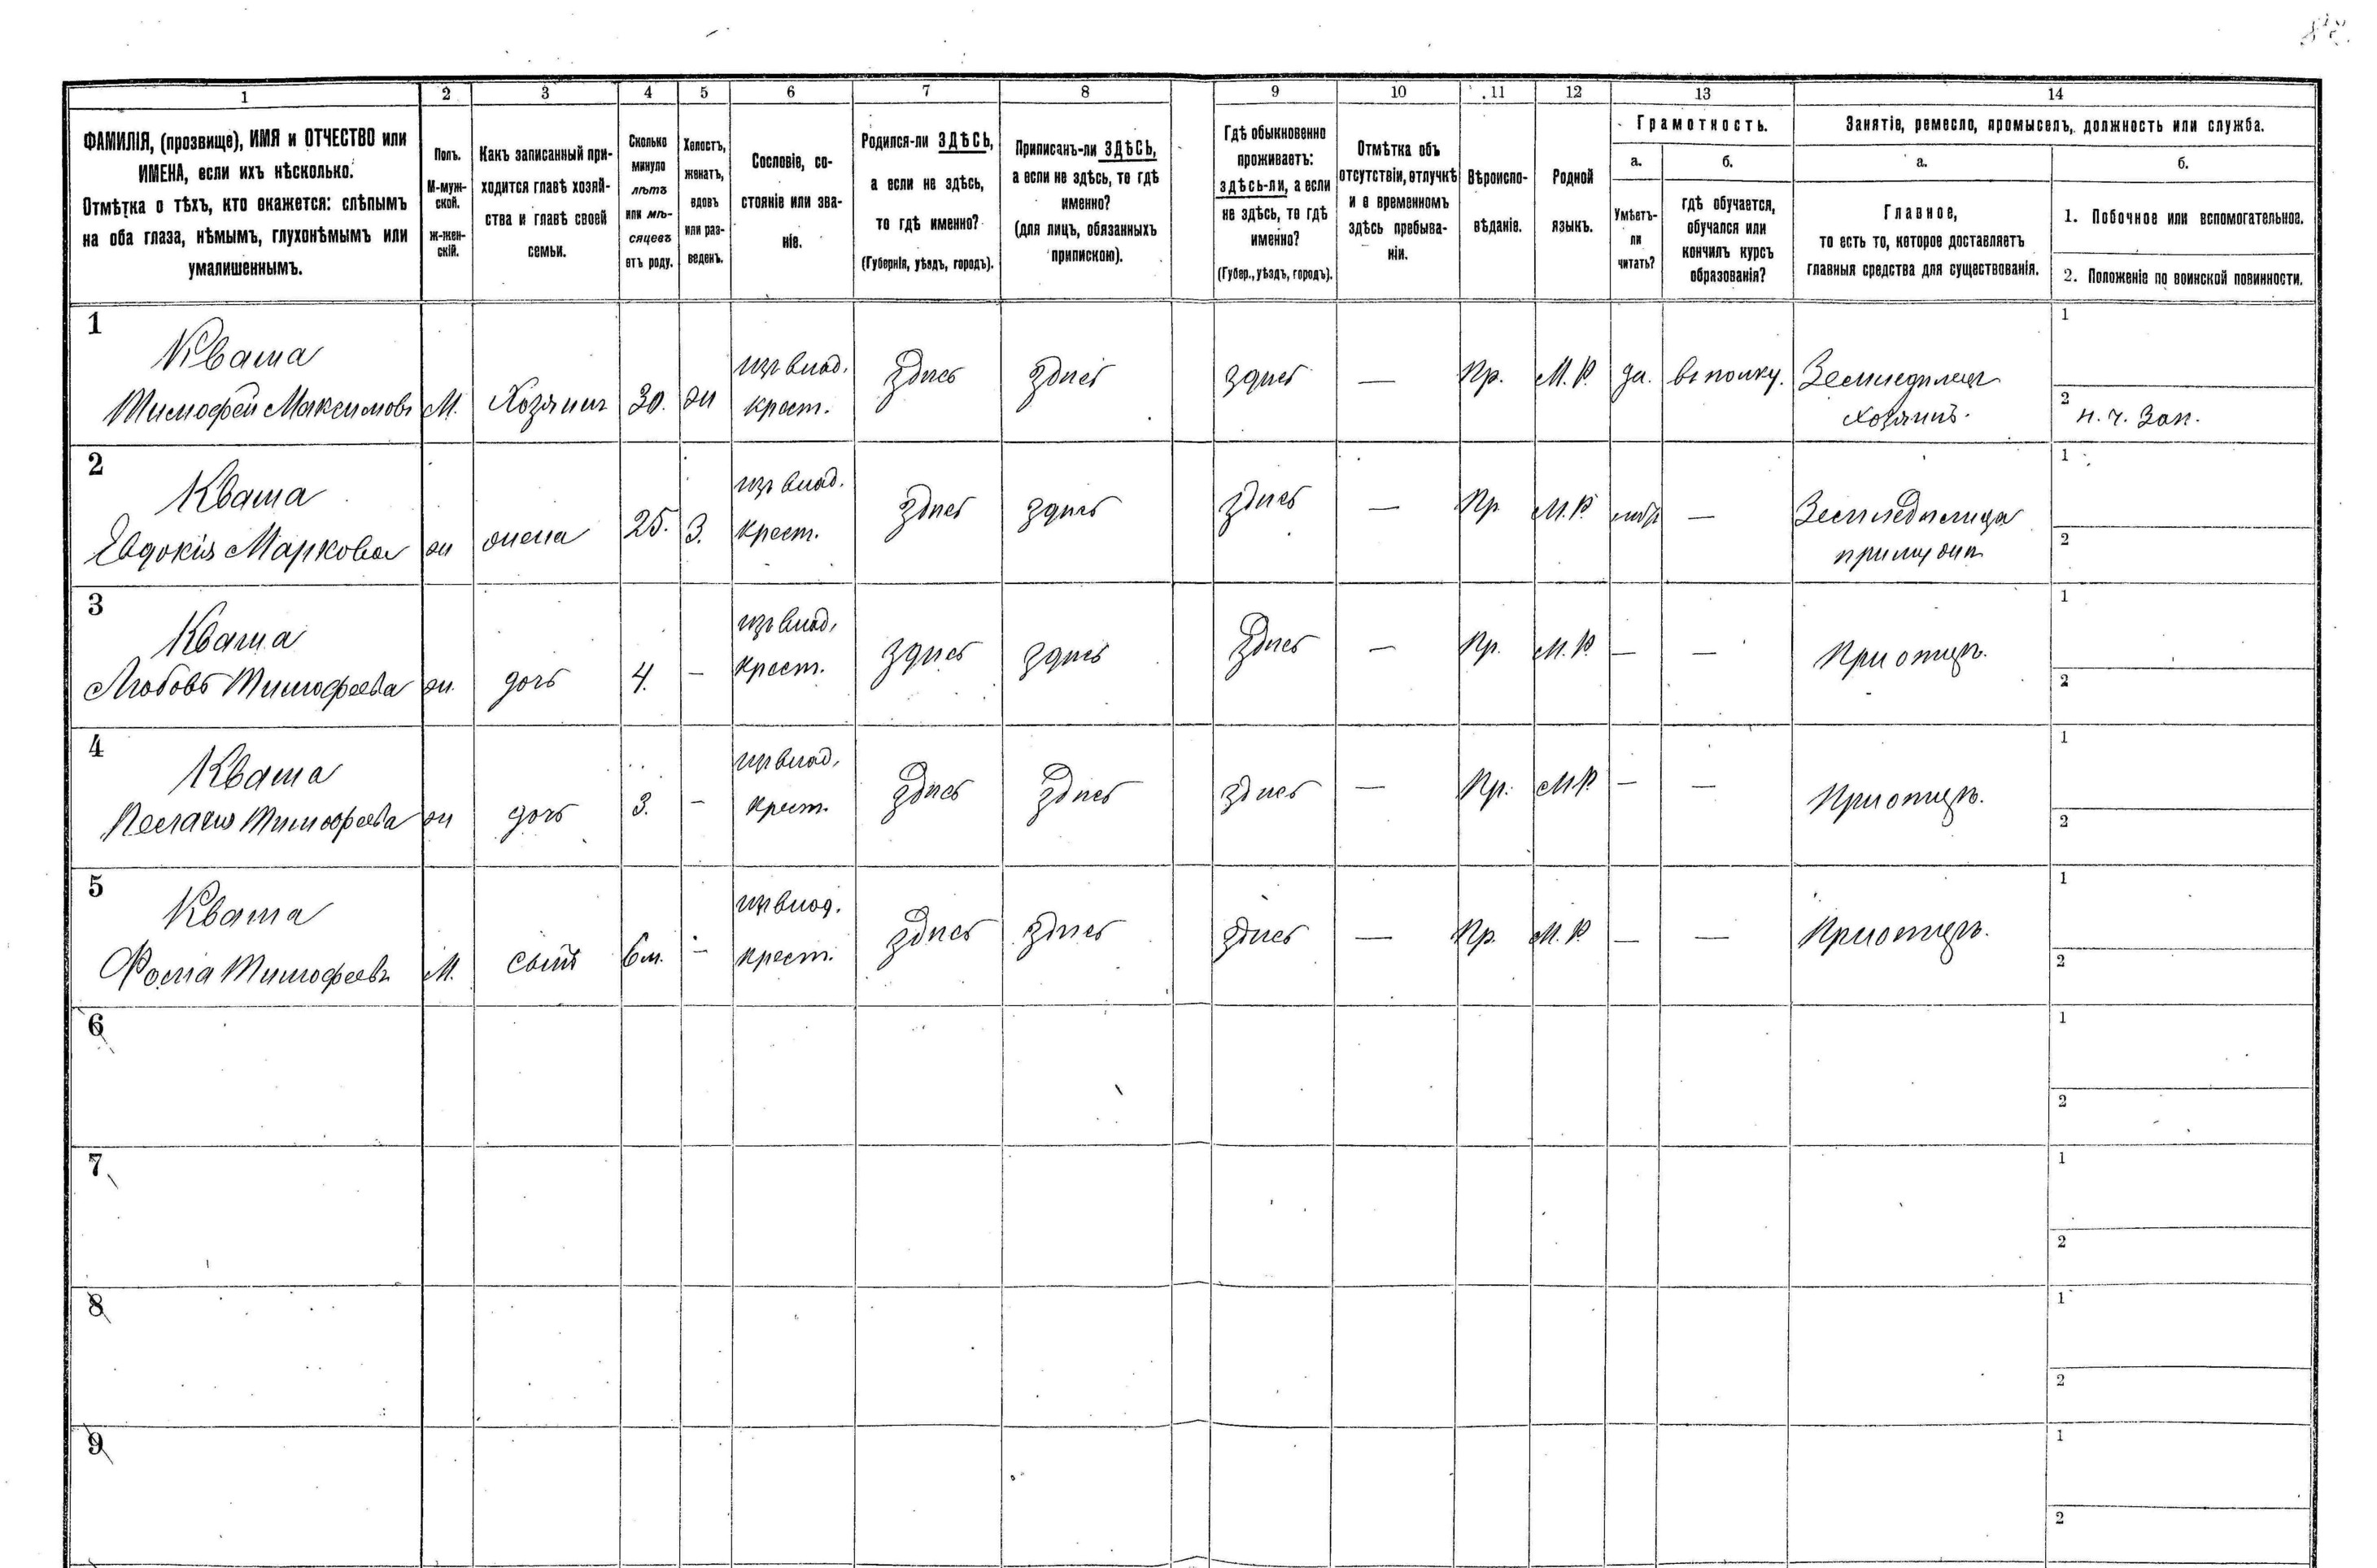 1 2 3 4 5 6 7 8 9 10 11 12 13 14
ФАМИЛІЯ, (прозвище), ИМЯ и ОТЧЕСТВО или
ИМЕНА, если ихъ нѣсколько.
Отмѣтка о тѣхъ, кто окажется: слѣпымъ
на оба глаза, нѣмымъ, глухонѣмымъ или
умалишеннымъ.
Полъ.
М-муж-
ской.
ж-жен-
скій.
Какъ записанный при-
ходится главѣ хозяй-
ства и главѣ своей
семьи.
Сколько
минуло
лѣтъ
или мѣ-
сяцевъ
отъ роду.
Холостъ,
женатъ,
вдовъ
или раз-
веденъ.
Сословіе, со-
стояніе или зва-
ніе.
Родился-ли ЗДѢСЬ,
а если не здѣсь,
то гдѣ именно?
(Губернія, уѣздъ, городъ).
Приписанъ-ли ЗДѢСЬ,
а если не здѣсь, то гдѣ
именно?
(для лицъ, обязанныхъ
припискою).
Гдѣ обыкновенно
проживаетъ:
здѣсь-ли, а если
не здѣсь, то гдѣ
именно?
(Губер., уѣздъ, городъ).
Отмѣтка объ
отсутствіи, отлучкѣ
и о временномъ
здѣсь пребыва-
ніи.
Вѣроиспо-
вѣданіе.
Родной
языкъ.
Грамотность.
а.
Умѣетъ-
ли
читать?
б.
гдѣ обучается,
обучался или
кончилъ курсъ
образованія?
Занятіе, ремесло, промыселъ, должность или служба.
а.
Главное,
то есть то, которое доставляетъ
главныя средства для существованія.
б.
1. Побочное или вспомогательное.
2. Положеніе по воинской повинности.
1
Кваша
Тимофей Максимовъ М. Хозяинъ 30. ж изъ влад. крест. здѣсь здѣсь здѣсь — Пр. М. Р. да. въ полку. Земледѣлецъ
хозяинъ.
1
2 н. ч. Зап.
2
Кваша
Евдокія Маркова ж жена 25. З. изъ влад. крест. здѣсь здѣсь здѣсь — Пр М. Р. — Земледѣлица
при мужѣ
1
2
3
Кваша
Любовь Тимофеева ж. дочь 4. — изъ влад. крест. здѣсь здѣсь здѣсь — Пр. М. Р. — — При отцѣ.
1
2
4
Кваша
Пелагія Тимофеева ж дочь 3. — изъ влад. крест. здѣсь здѣсь здѣсь — Пр. М. Р. — — При отцѣ.
1
2
5
Кваша
Фома Тимофеевъ М. сынъ 6 м. — изъ влад. крест. здѣсь здѣсь здѣсь — Пр. М. Р. — — При отцѣ.
1
2
6
1
2
7
1
2
8
1
2
9
1
2